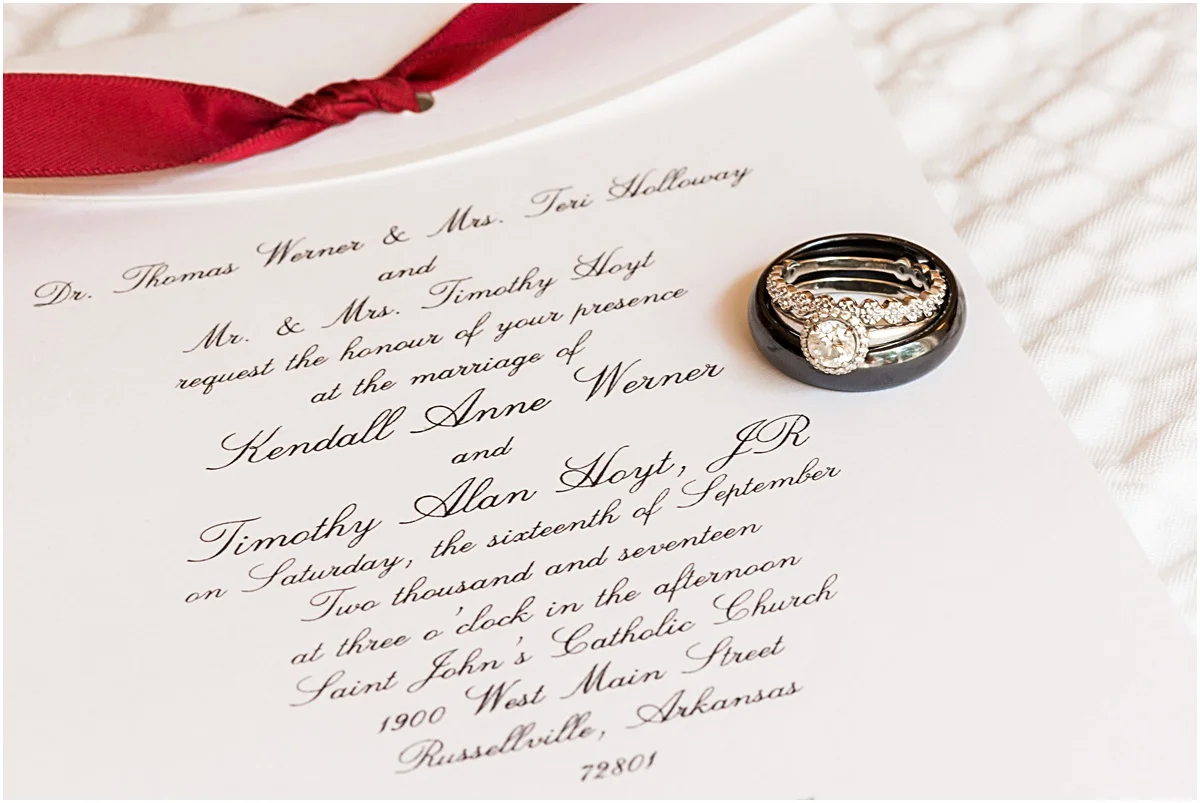 Dr. Thomas Werner & Mrs. Teri Holloway
and
Mr. & Mrs. Timothy Hoyt
request the honour of your presence
at the marriage of
Kendall Anne Werner
and
Timothy Alan Hoyt, JR
on Saturday, the sixteenth of September
Two thousand and seventeen
at three o'clock in the afternoon
Saint John's Catholic Church
1900 West Main Street
Russellville, Arkansas
72801